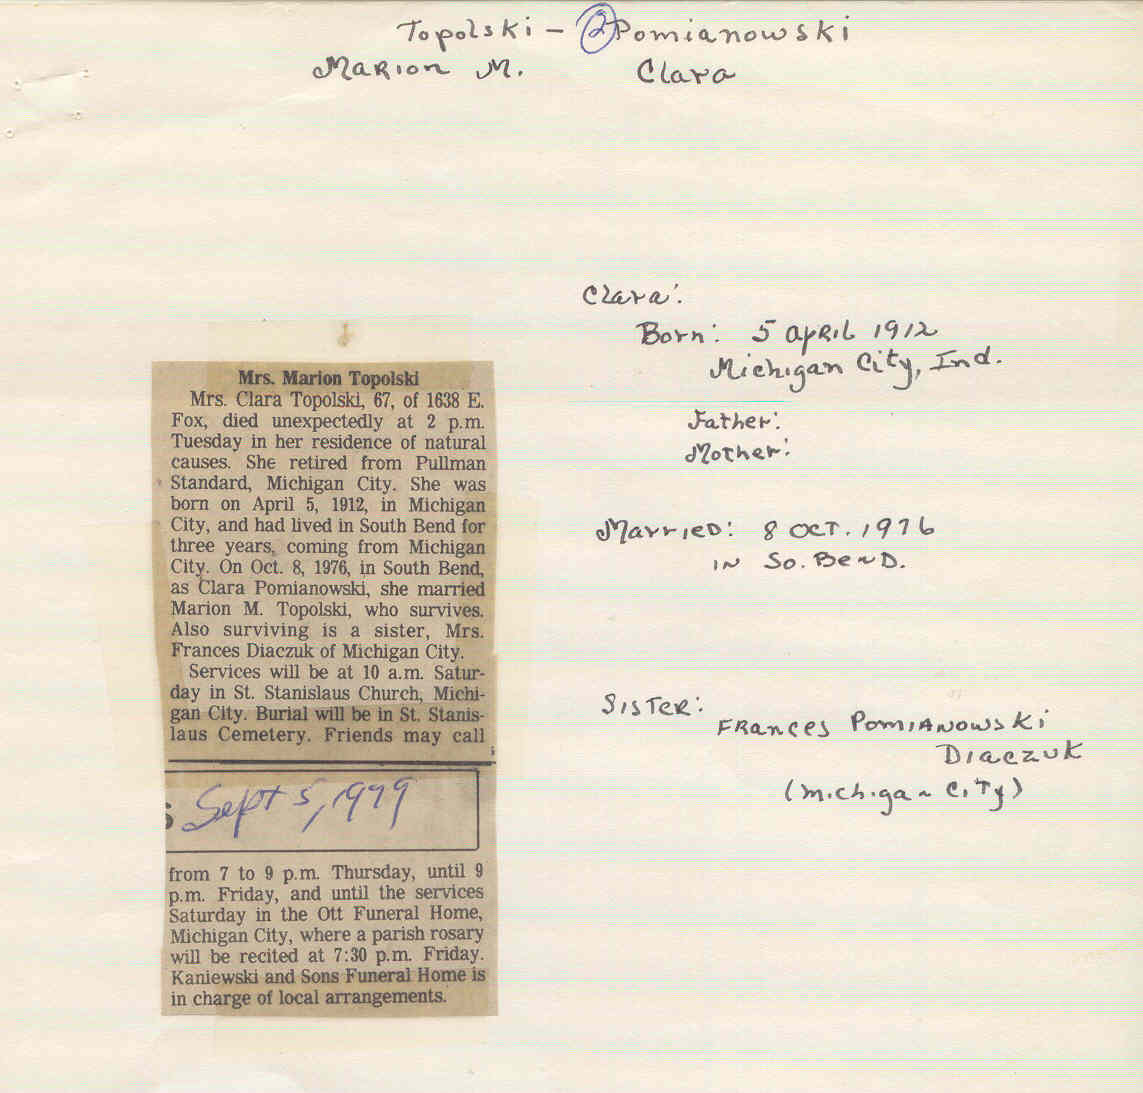 Topolski – ② Pomianowski
Marion M. Clara
Clara:
Born: 5 April 1912
Michigan City, Ind.
Father:
Mother:
Married: 8 Oct. 1976
in So. Bend.
Sister:
Frances Pomianowski
Diaczuk
(Michigan City)
Mrs. Marion Topolski
Mrs. Clara Topolski, 67, of 1638 E.
Fox, died unexpectedly at 2 p.m.
Tuesday in her residence of natural
causes. She retired from Pullman
Standard, Michigan City. She was
born on April 5, 1912, in Michigan
City, and had lived in South Bend for
three years, coming from Michigan
City. On Oct. 8, 1976, in South Bend,
as Clara Pomianowski, she married
Marion M. Topolski, who survives.
Also surviving is a sister, Mrs.
Frances Diaczuk of Michigan City.
Services will be at 10 a.m. Satur-
day in St. Stanislaus Church, Michi-
gan City. Burial will be in St. Stanis-
laus Cemetery. Friends may call
Sept 5, 1979
from 7 to 9 p.m. Thursday, until 9
p.m. Friday, and until the services
Saturday in the Ott Funeral Home,
Michigan City, where a parish rosary
will be recited at 7:30 p.m. Friday.
Kaniewski and Sons Funeral Home is
in charge of local arrangements.